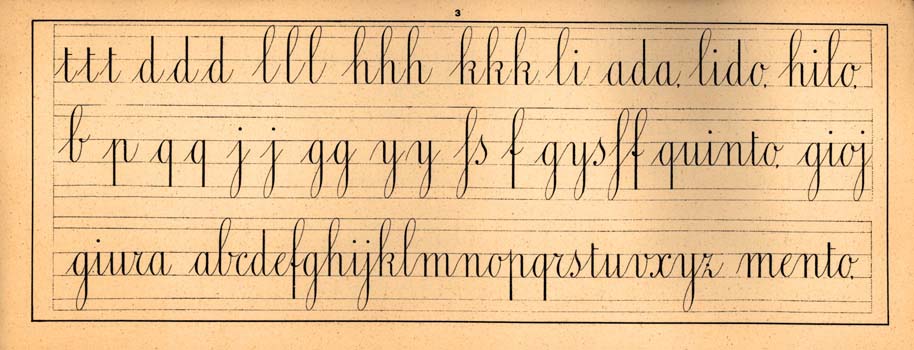 3
ttt ddd lll hhh kkk li ada, lido, hilo,
b p qq jj gg yy ſs f gysſf quinto, gioj
giura abcdefghijklmnopqrstuvxyz mento,